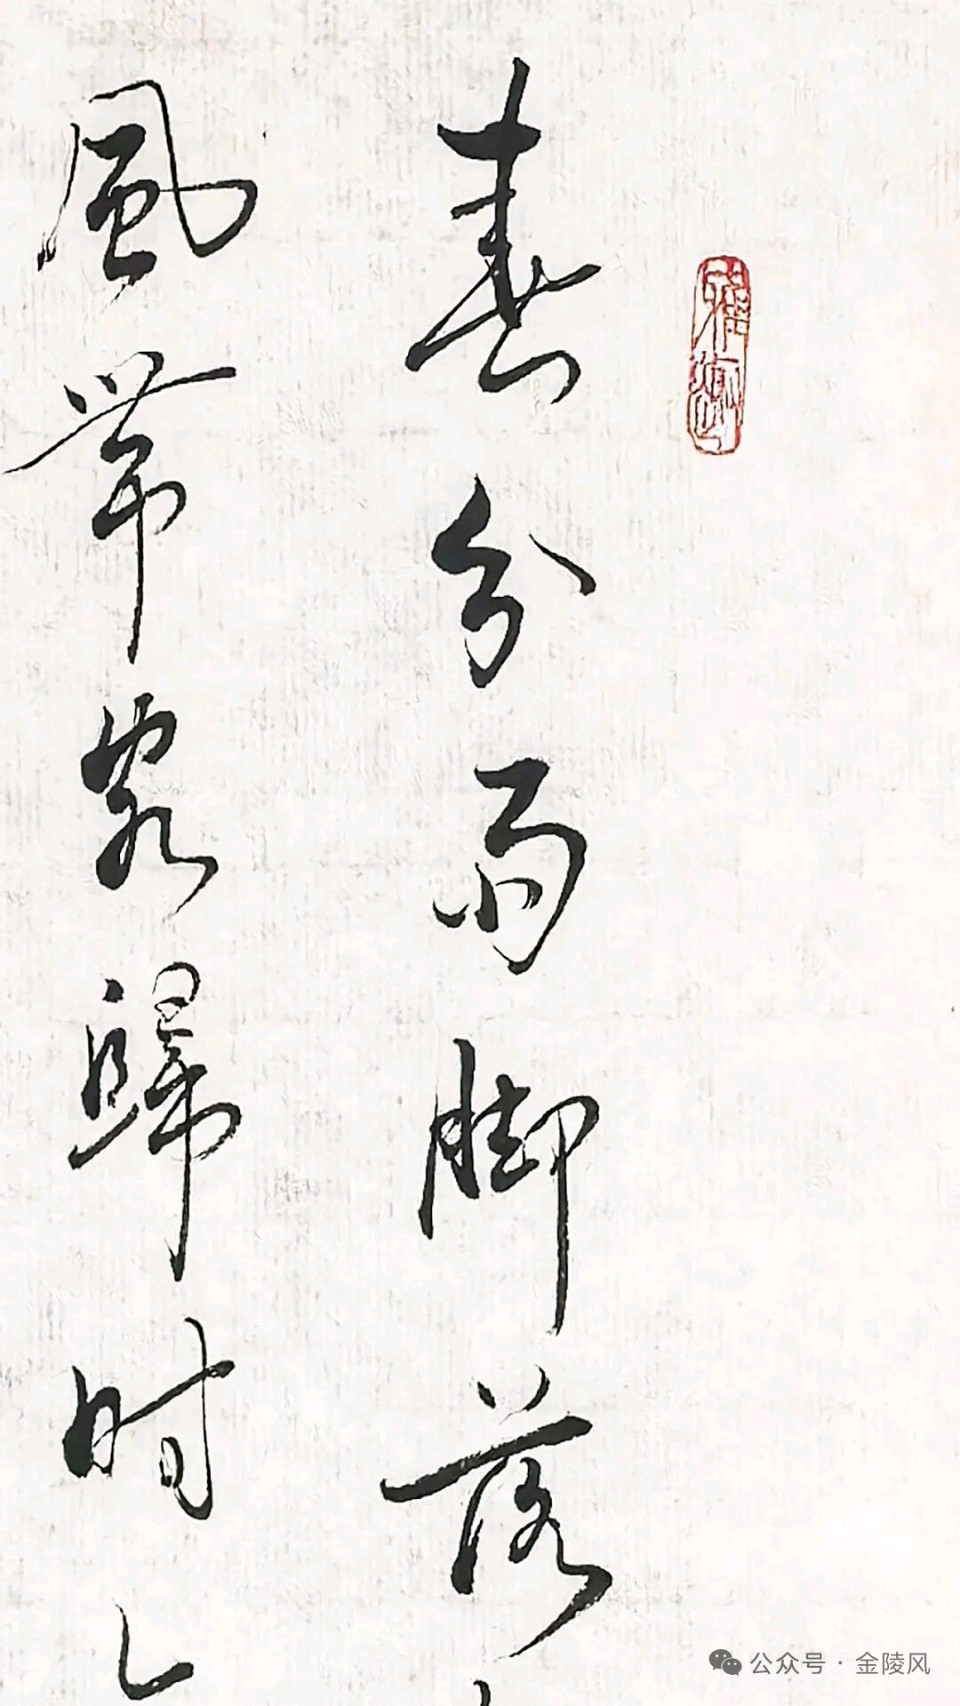 春分雨脚落
風带客歸时
公众号 · 金陵风